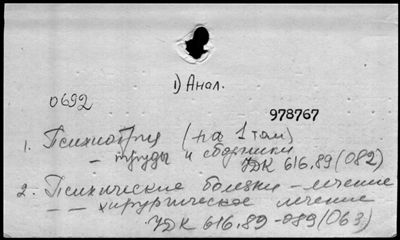 1) Анал.
0692
978767
1. Психиатрия (на 1 том)
— труды и сборники
УДК 616.89(082)
2. Психические болезни – лечение
— — хирургическое лечение
УДК 616.89-089(063)